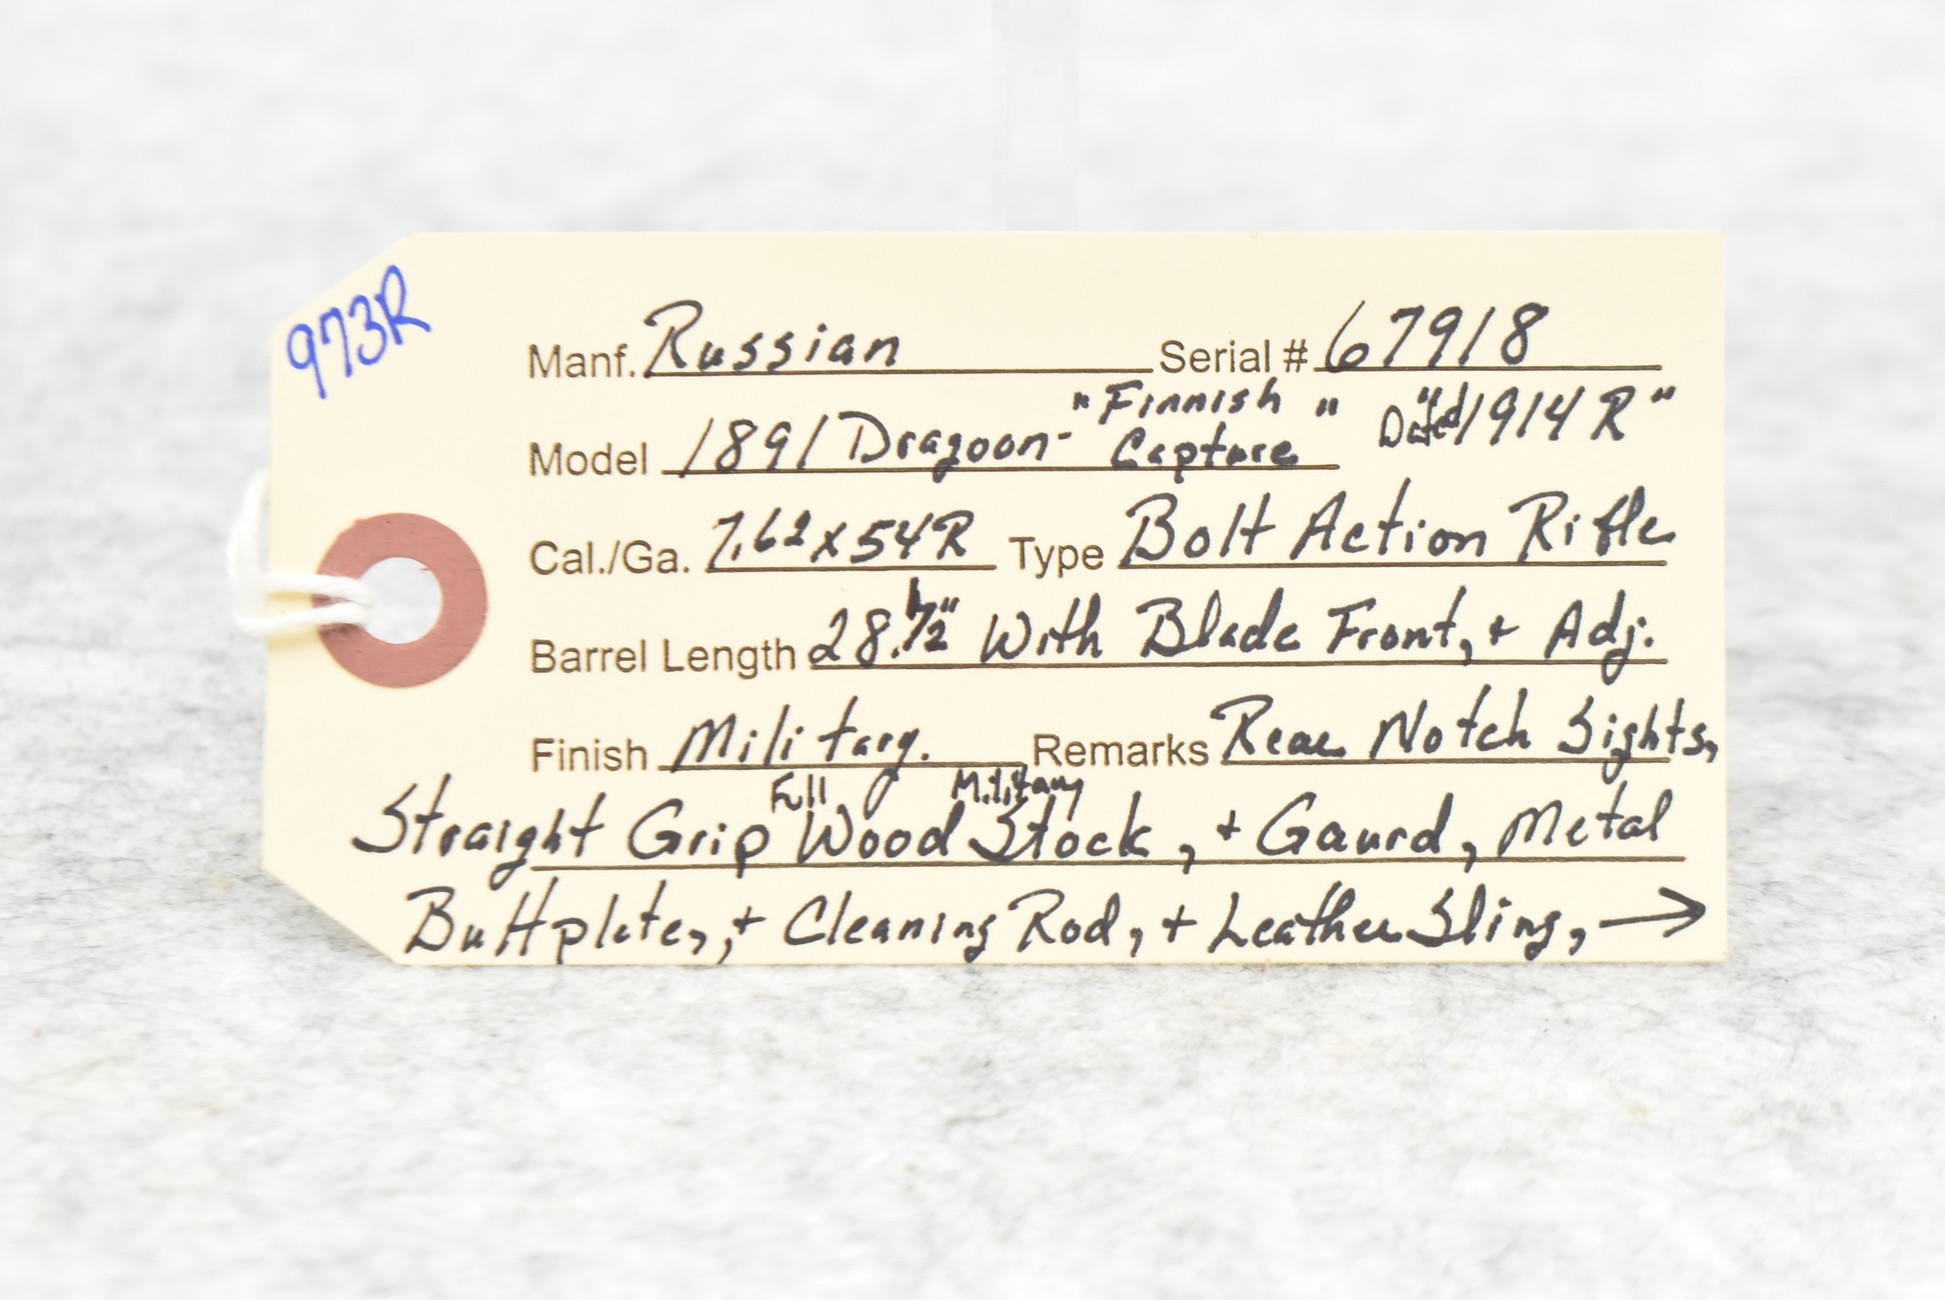 973R
Manf. Russian Serial # 67918
"Finnish " Dated "1914 R"
Model 1891 Dragoon- Capture
Cal./Ga. 7.62x54R Type Bolt Action Rifle
Barrel Length 28.1/2" With Blade Front, + Adj.
Finish Military. Remarks Rear Notch Sights,
Full Military
Straight Grip Wood Stock, + Gaurd, Metal
Buttplate, + Cleaning Rod, + Leather Sling, →